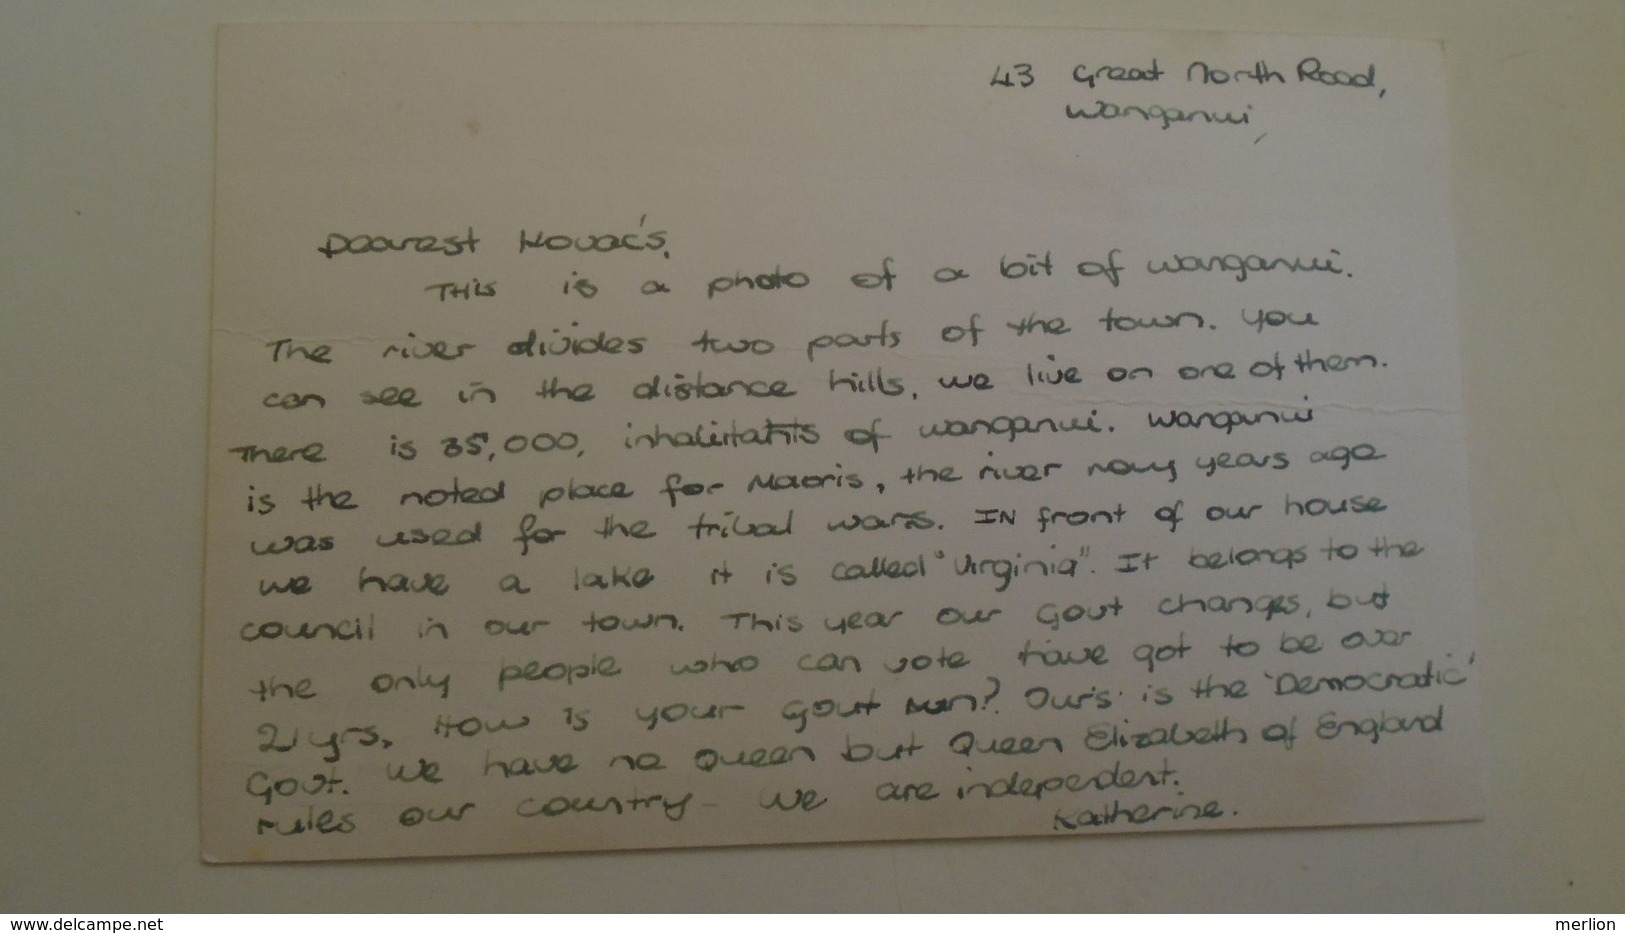 43 Great North Road,
Wanganui,
Dearest Kovac's,
THis is a photo of a bit of wanganui.
The river divides two parts of the town. You
can see in the distance hills, we live on one of them.
There is 35,000, inhabitants of wanganui. Wanganui
is the noted place for Maoris, the river many years ago
was used for the tribal wars. IN front of our house
we have a lake it is called "Virginia". It belongs to the
council in our town. This year our Govt changes, but
the only people who can vote have got to be over
21 yrs. How is your govt run? Our's is the 'Democratic'
Govt. We have no Queen but Queen Elizabeth of England
rules our country - we are independent.
Katherine.
www.delcampe.net
merlion